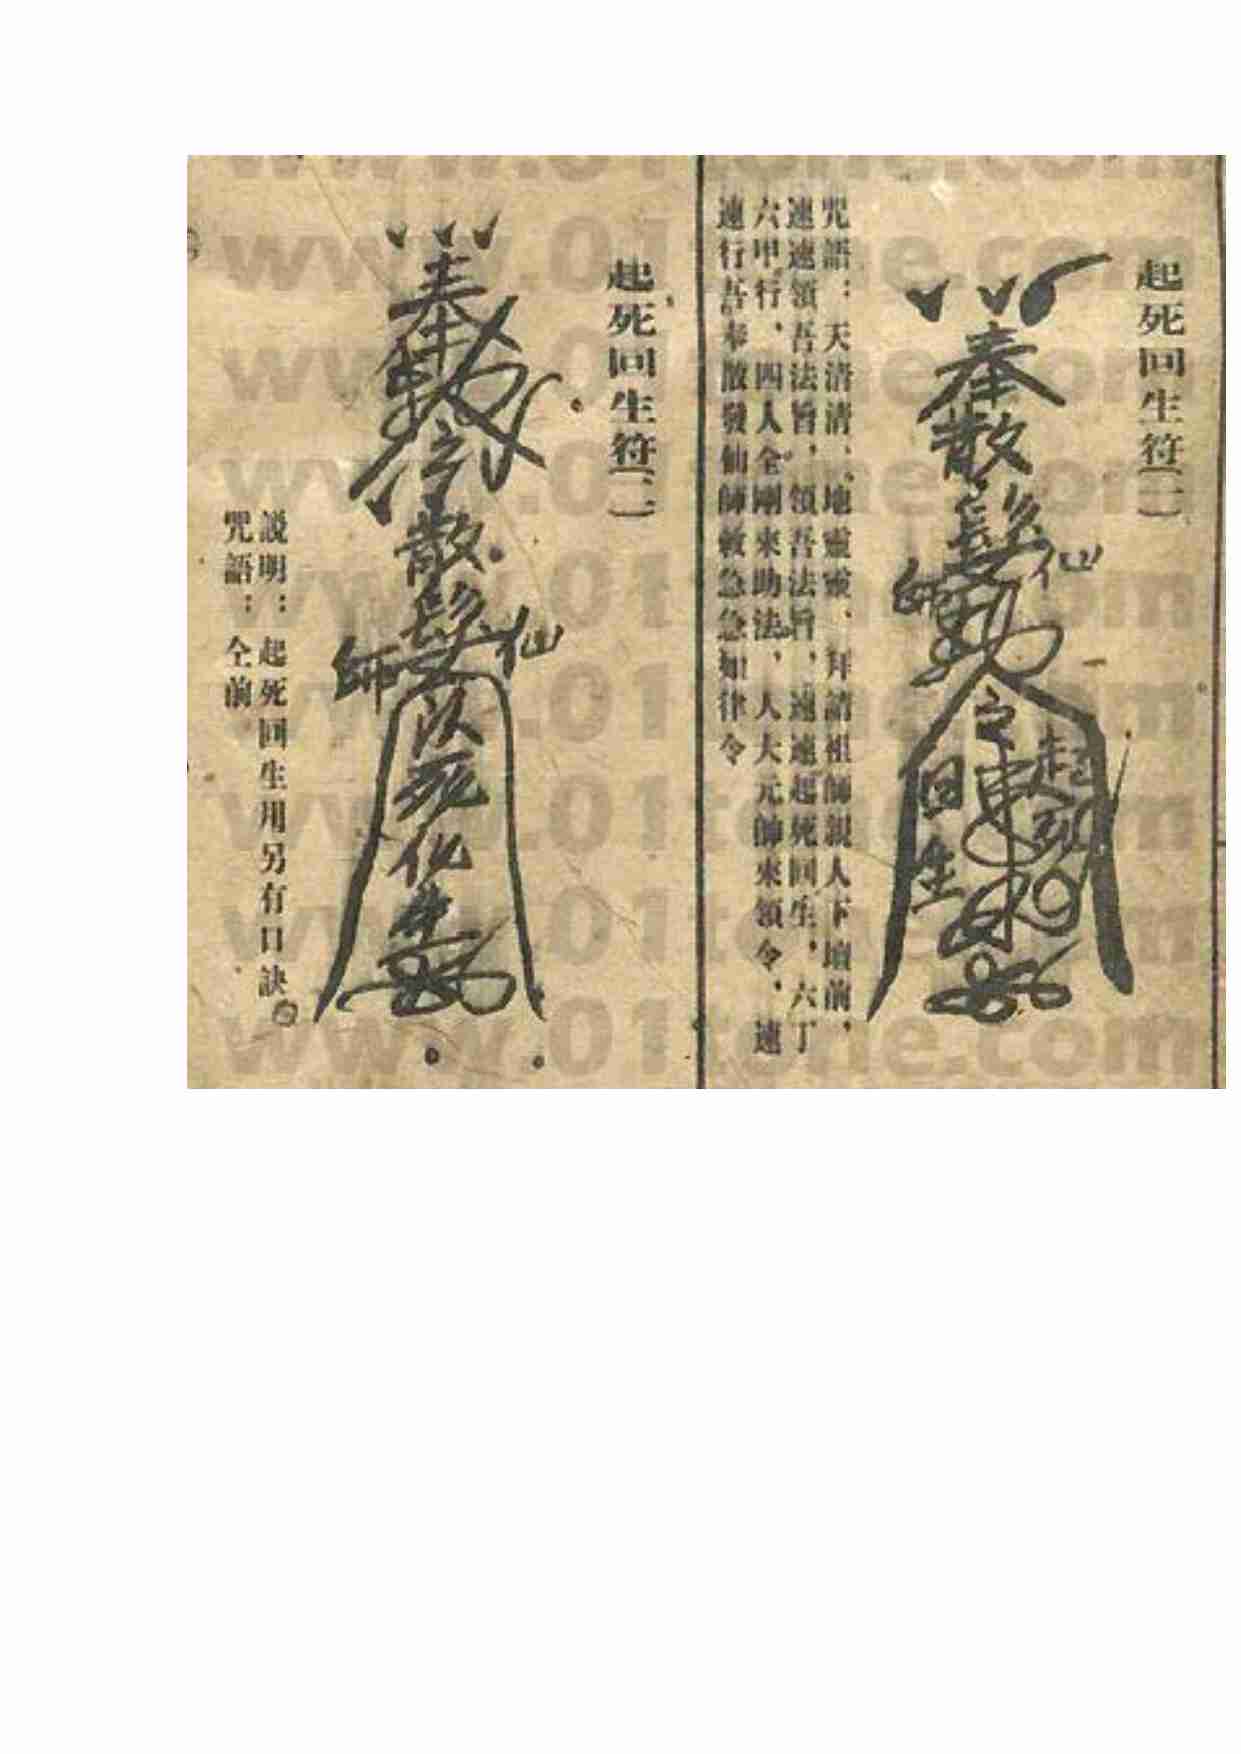 起死回生符(一)
奉
散
髮
仙
師
勅
令
起死
回生
咒語：天清清、地靈靈、拜請祖師親人下壇前，
速速領吾法旨，領吾法旨，速速起死回生，六丁
六甲行，四人金剛來助法，人大元帥來領令，速
速行吾奉散發仙師敕急急如律令
起死回生符(二)
奉
勅
令
散
髮
仙
師
死
化
生
説明：起死回生用另有口訣
咒語：仝前
www.01tone.com